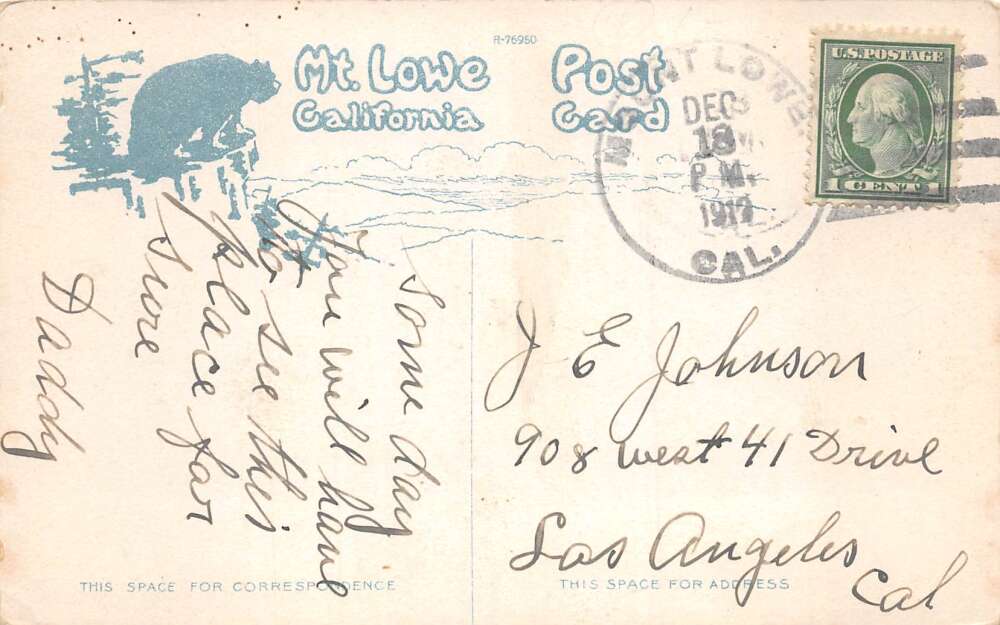 R-76950
Mt. Lowe Post
California Card
MOUNT LOWE
DEC
18
P M.
1917
CAL.
U.S. POSTAGE
1 CENT 1
Some day
You will have
to see this
place far
sure
Daddy
J E Johnson
908 west 41 Drive
Los Angeles
Cal
THIS SPACE FOR CORRESPONDENCE
THIS SPACE FOR ADDRESS